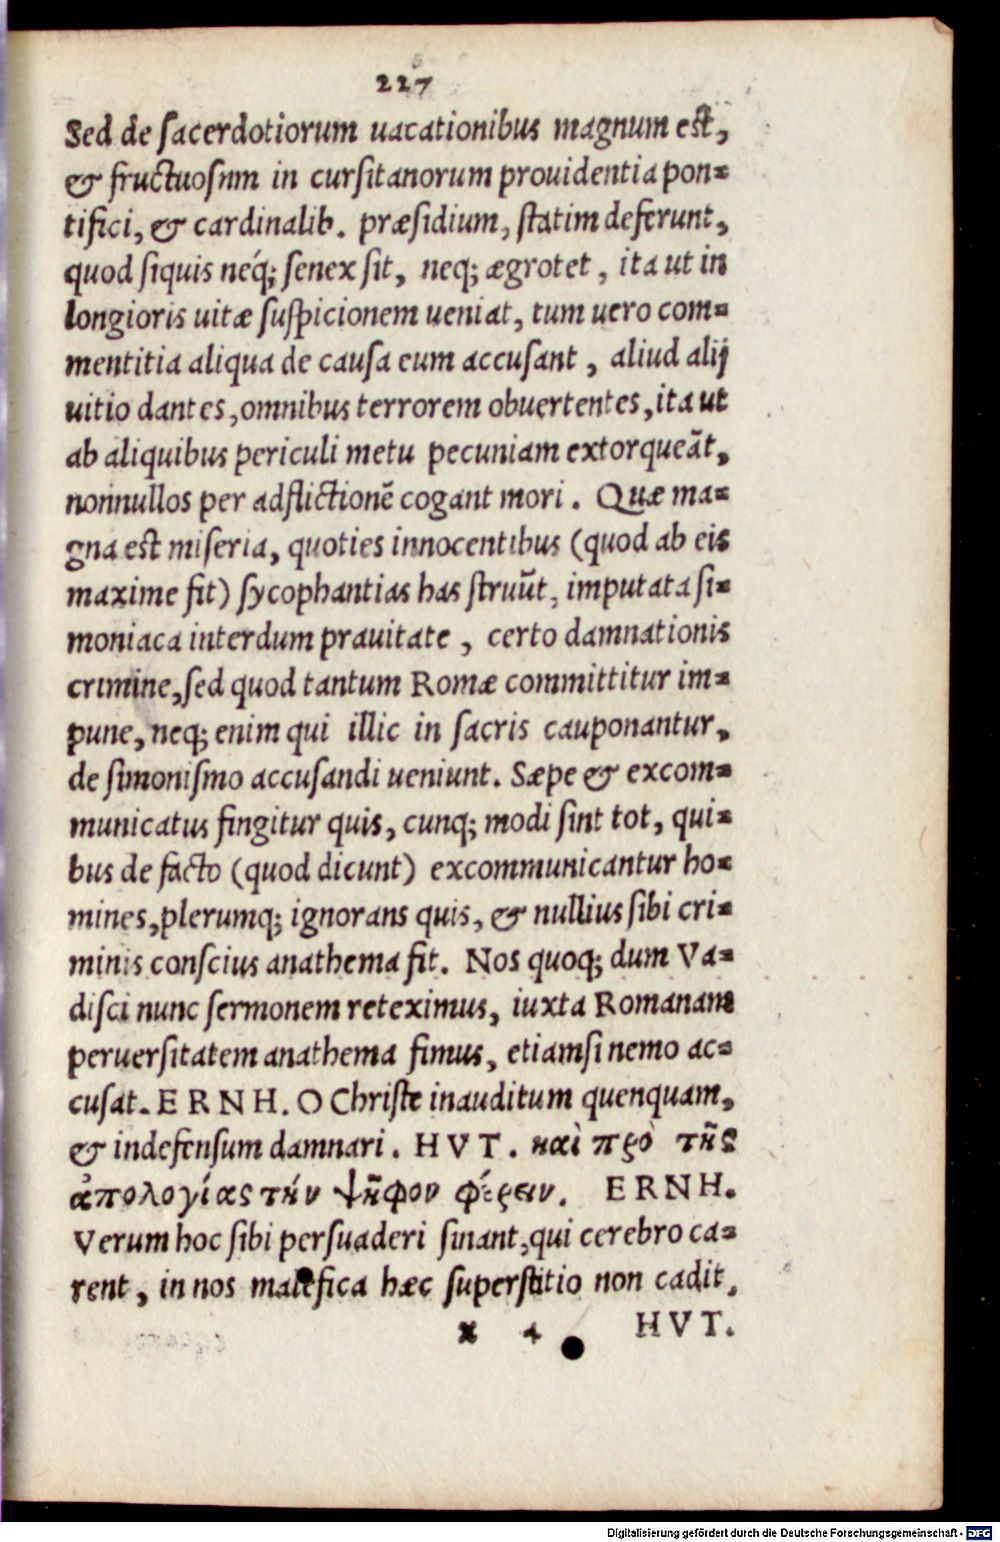 227
Sed de sacerdotiorum uacationibus magnum est,
& fructuosnm in cursitanorum prouidentia pon=
tifici, & cardinalib. præsidium, statim deferunt,
quod siquis neq́; senex sit, neq; ægrotet, ita ut in
longioris uitæ suspicionem ueniat, tum uero com=
mentitia aliqua de causa eum accusant, aliud alij
uitio dantes, omnibus terrorem obuertentes, ita ut
ab aliquibus periculi metu pecuniam extorqueãt,
nonnullos per adflictionẽ cogant mori. Quæ ma=
gna est miseria, quoties innocentibus (quod ab eis
maxime fit) sycophantias has struũt, imputata si=
moniaca interdum prauitate, certo damnationis
crimine, sed quod tantum Romæ committitur im=
pune, neq; enim qui illic in sacris cauponantur,
de simonismo accusandi ueniunt. Sæpe & excom=
municatus fingitur quis, cunq; modi sint tot, qui=
bus de facto (quod dicunt) excommunicantur ho=
mines, plerumq; ignorans quis, & nullius sibi cri=
minis conscius anathema fit. Nos quoq; dum Va=
disci nunc sermonem reteximus, iuxta Romanam
peruersitatem anathema fimus, etiamsi nemo ac=
cusat. ERNH. O Christe inauditum quenquam,
& indefensum damnari. HVT. καὶ πρὸ τῆς
ἀπολογίας τήν ψῆφον φέρειν. ERNH.
Verum hoc sibi persuaderi sinant, qui cerebro ca=
rent, in nos malefica hæc superstitio non cadit.
x 4 HVT.
Digitalisierung gefördert durch die Deutsche Forschungsgemeinschaft - DFG